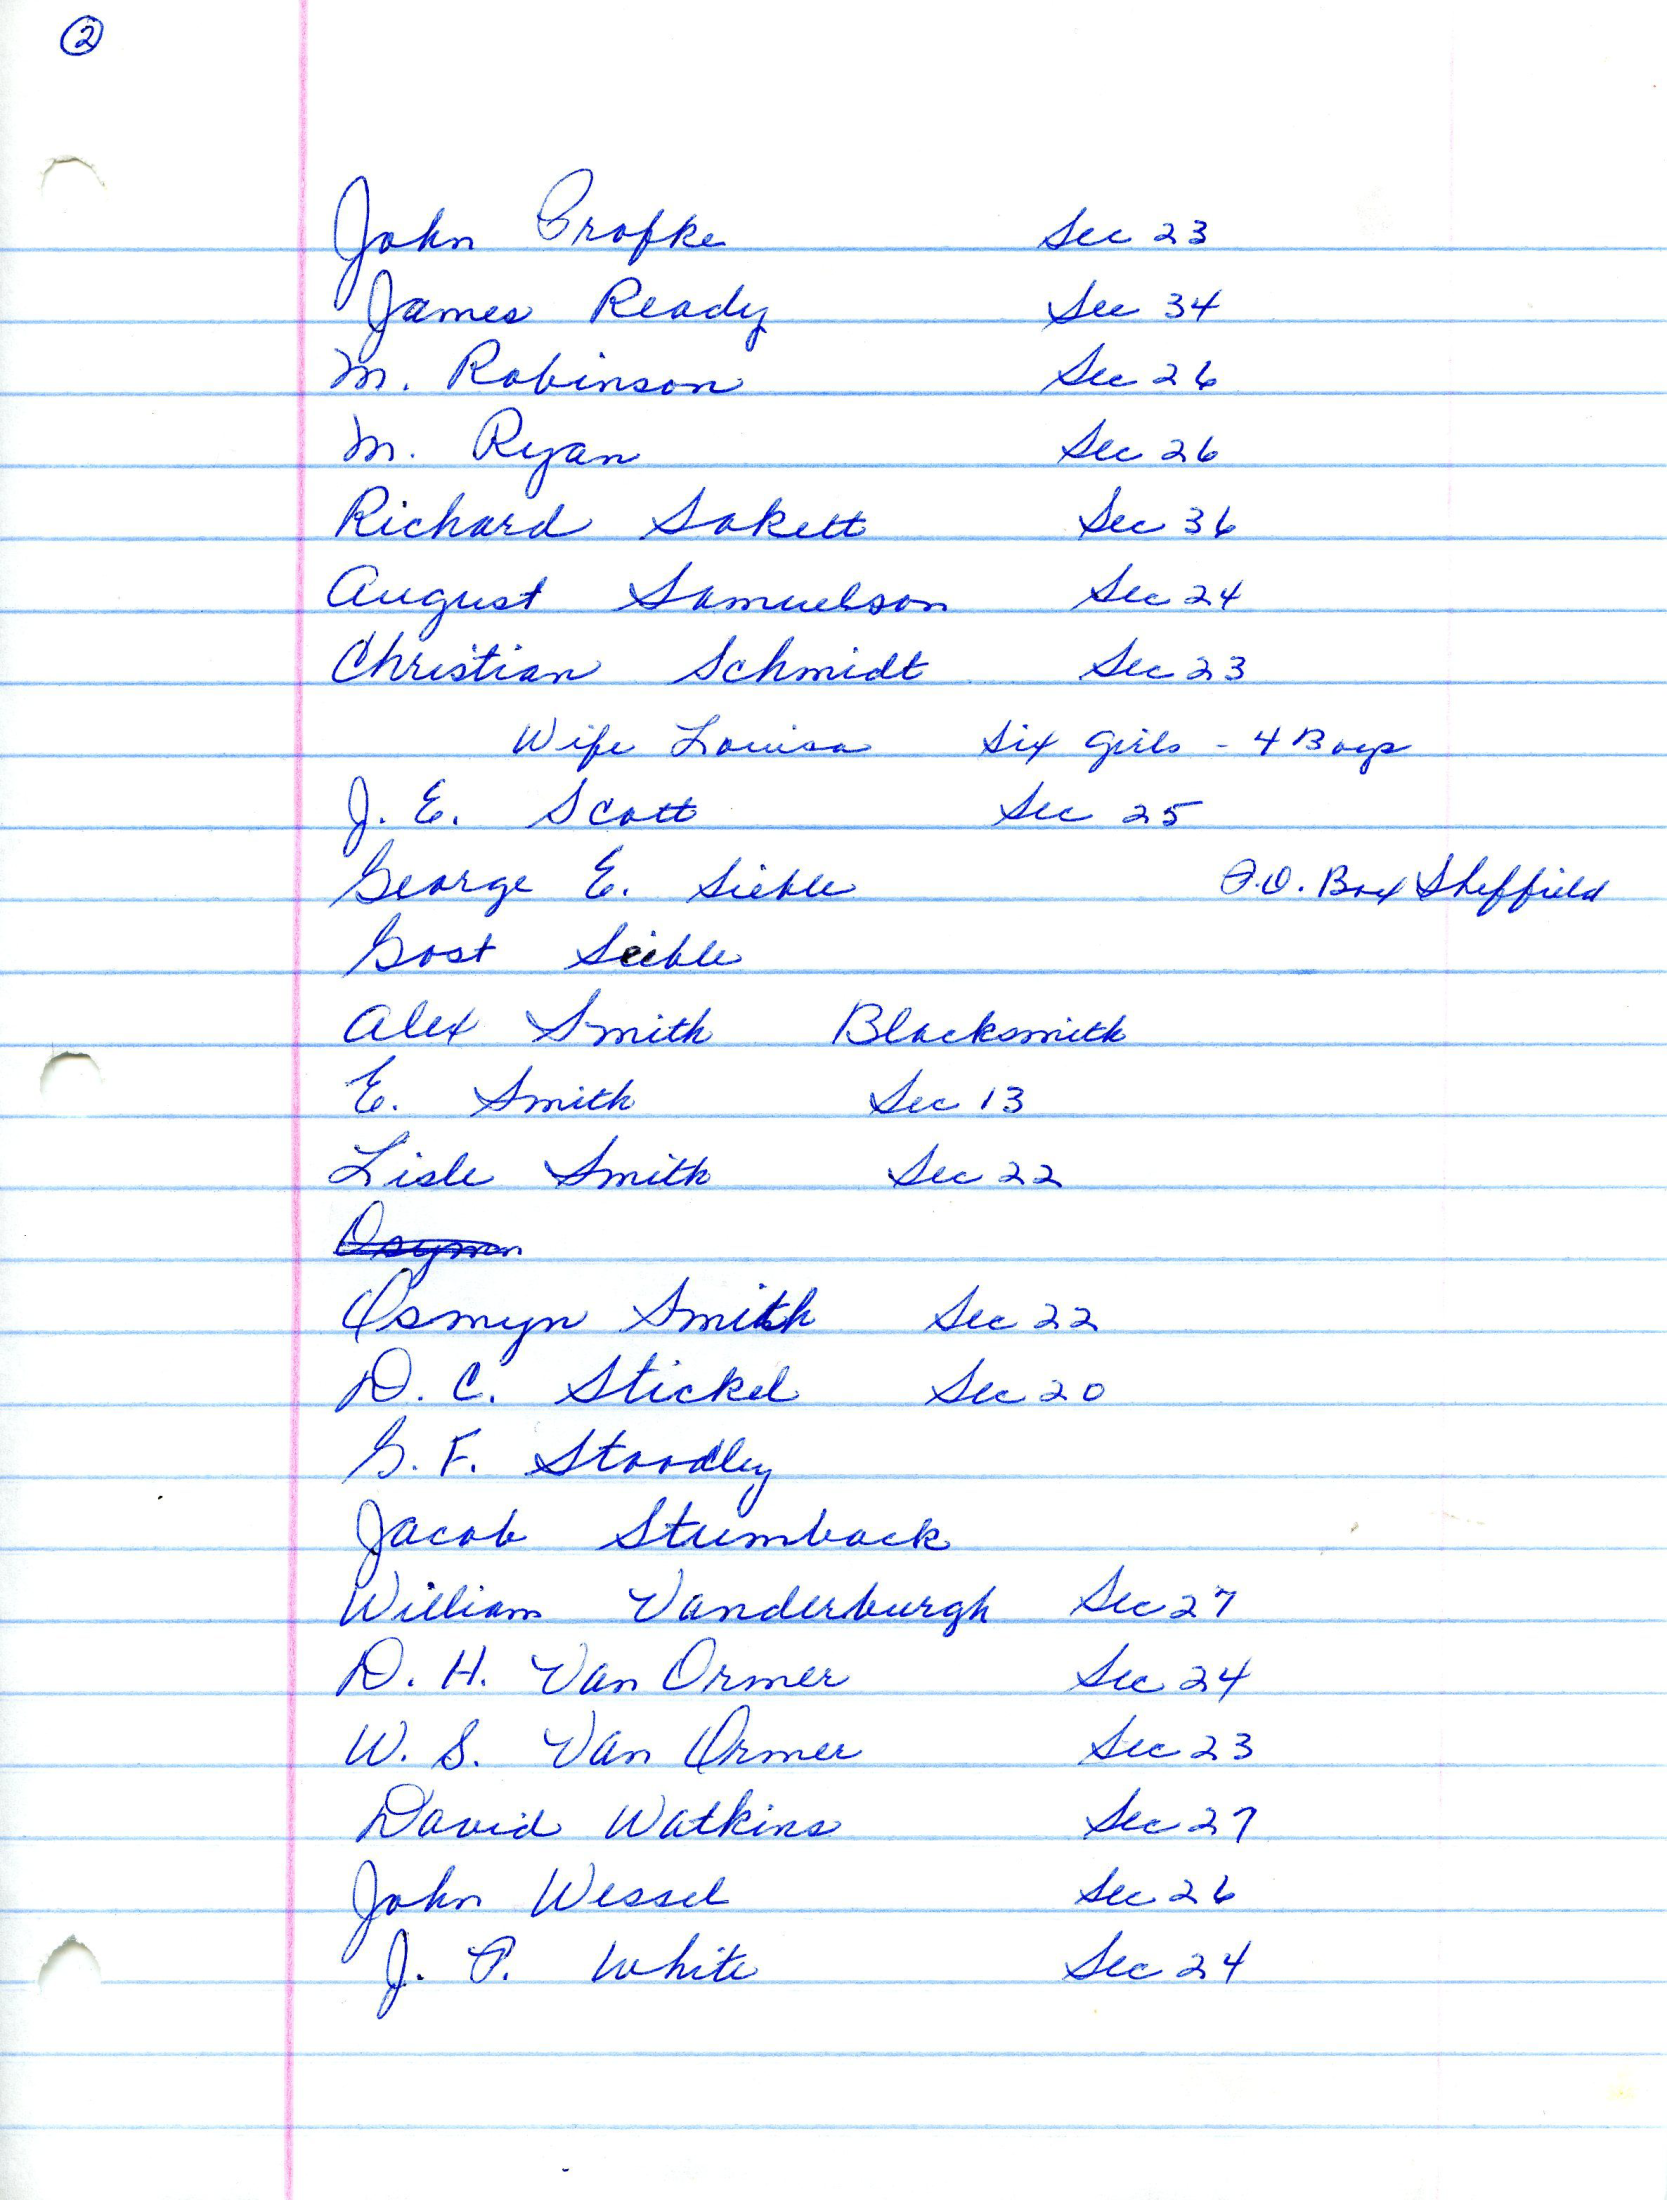 2
John Profke Sec 23
James Ready Sec 34
M. Robinson Sec 26
M. Ryan Sec 26
Richard Sakett Sec 36
August Samuelson Sec 24
Christian Schmidt Sec 23
Wife Louisa Six Girls - 4 Boys
J. E. Scott Sec 25
George E. Sieble P.O. Box Sheffield
Gost Seible
Alex Smith Blacksmith
E. Smith Sec 13
Lisle Smith Sec 22
Osymn
Osmyn Smith Sec 22
D. C. Stickel Sec 20
G. F. Stoodley
Jacob Stumback
William Vanderburgh Sec 27
D. H. Van Ormer Sec 24
W. S. Van Ormer Sec 23
David Watkins Sec 27
John Wessel Sec 26
J. P. White Sec 24